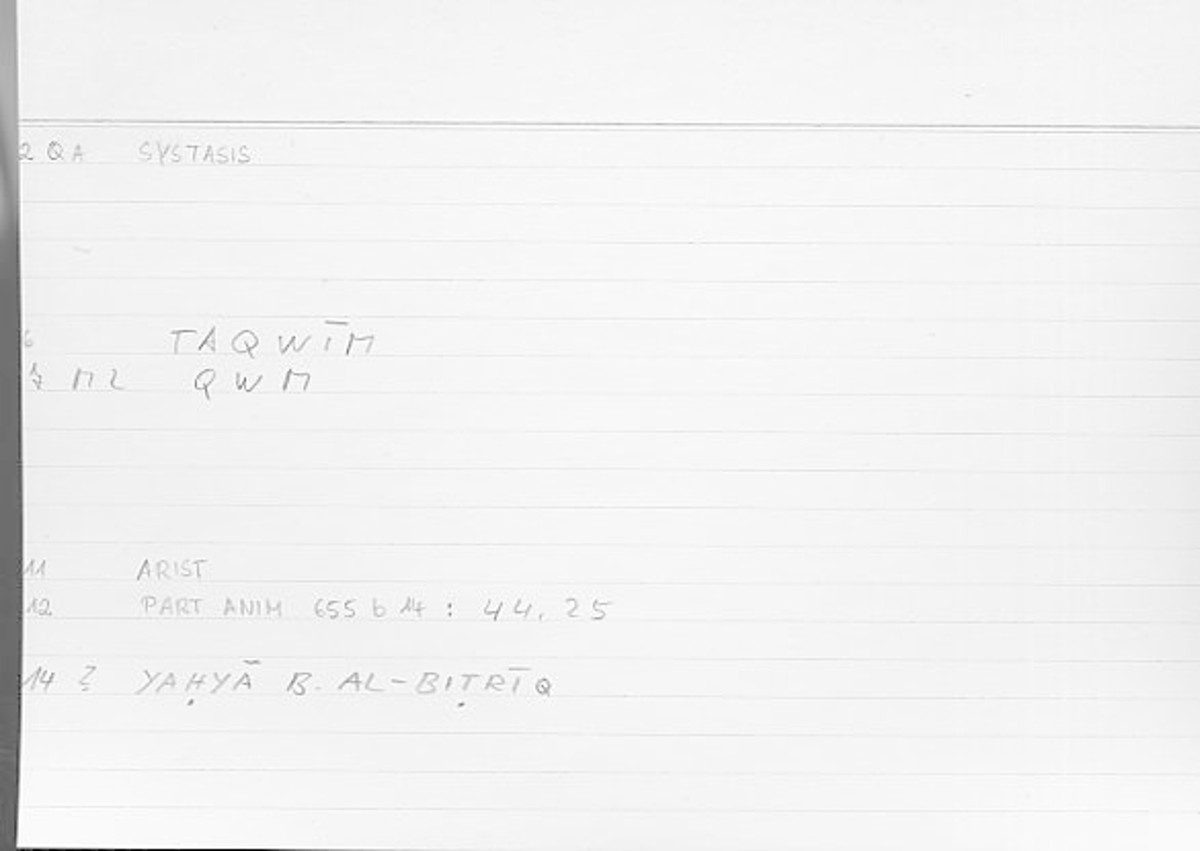 2 QA SYSTASIS
6 TAQWĪM
7 M2 QWM
11 ARIST
12 PART ANIM 655 b 14 : 44, 25
14 ? YAḤYĀ B. AL-BIṬRĪQ